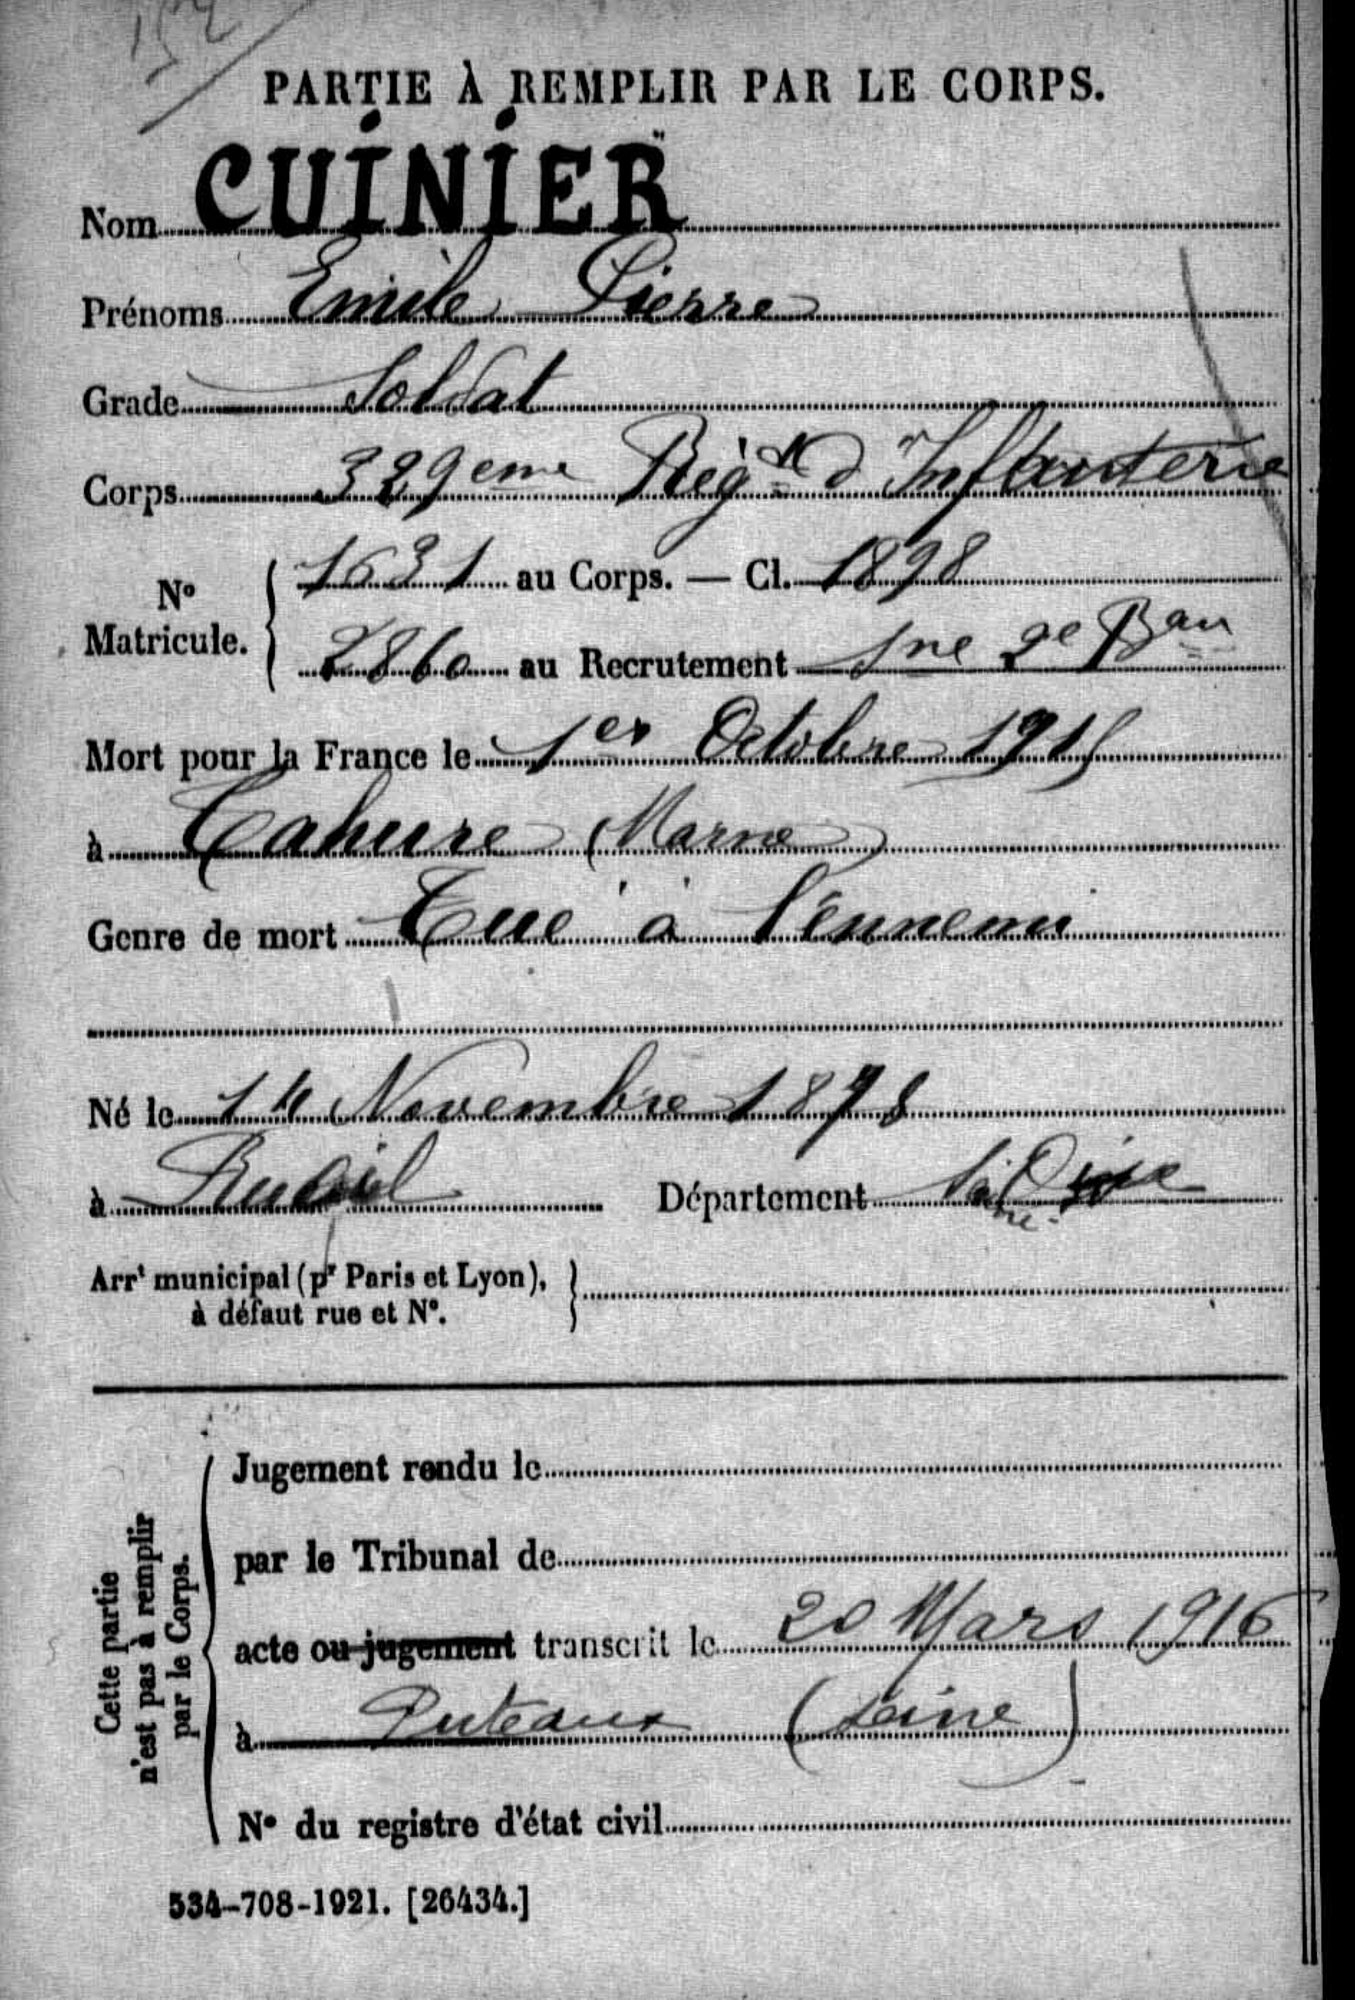 PARTIE À REMPLIR PAR LE CORPS.
Nom CUINIER
Prénoms Emile Pierre
Grade Soldat
Corps 329eme Régt d'Infanterie
No Matricule. 1631 au Corps. — Cl. 1898
2860 au Recrutement Sne 2e Bau
Mort pour la France le 1er Octobre 1915
à Tahure (Marne)
Genre de mort Tué à l'ennemi
Né le 14 Novembre 1878
à Rueil Département
Arrt municipal (pr Paris et Lyon),
à défaut rue et No.
Cette partie
n'est pas à remplir
par le Corps.
Jugement rendu le
par le Tribunal de
acte ou jugement transcrit le 20 Mars 1916
à Puteaux (Seine)
No du registre d'état civil
534-708-1921. [26434.]